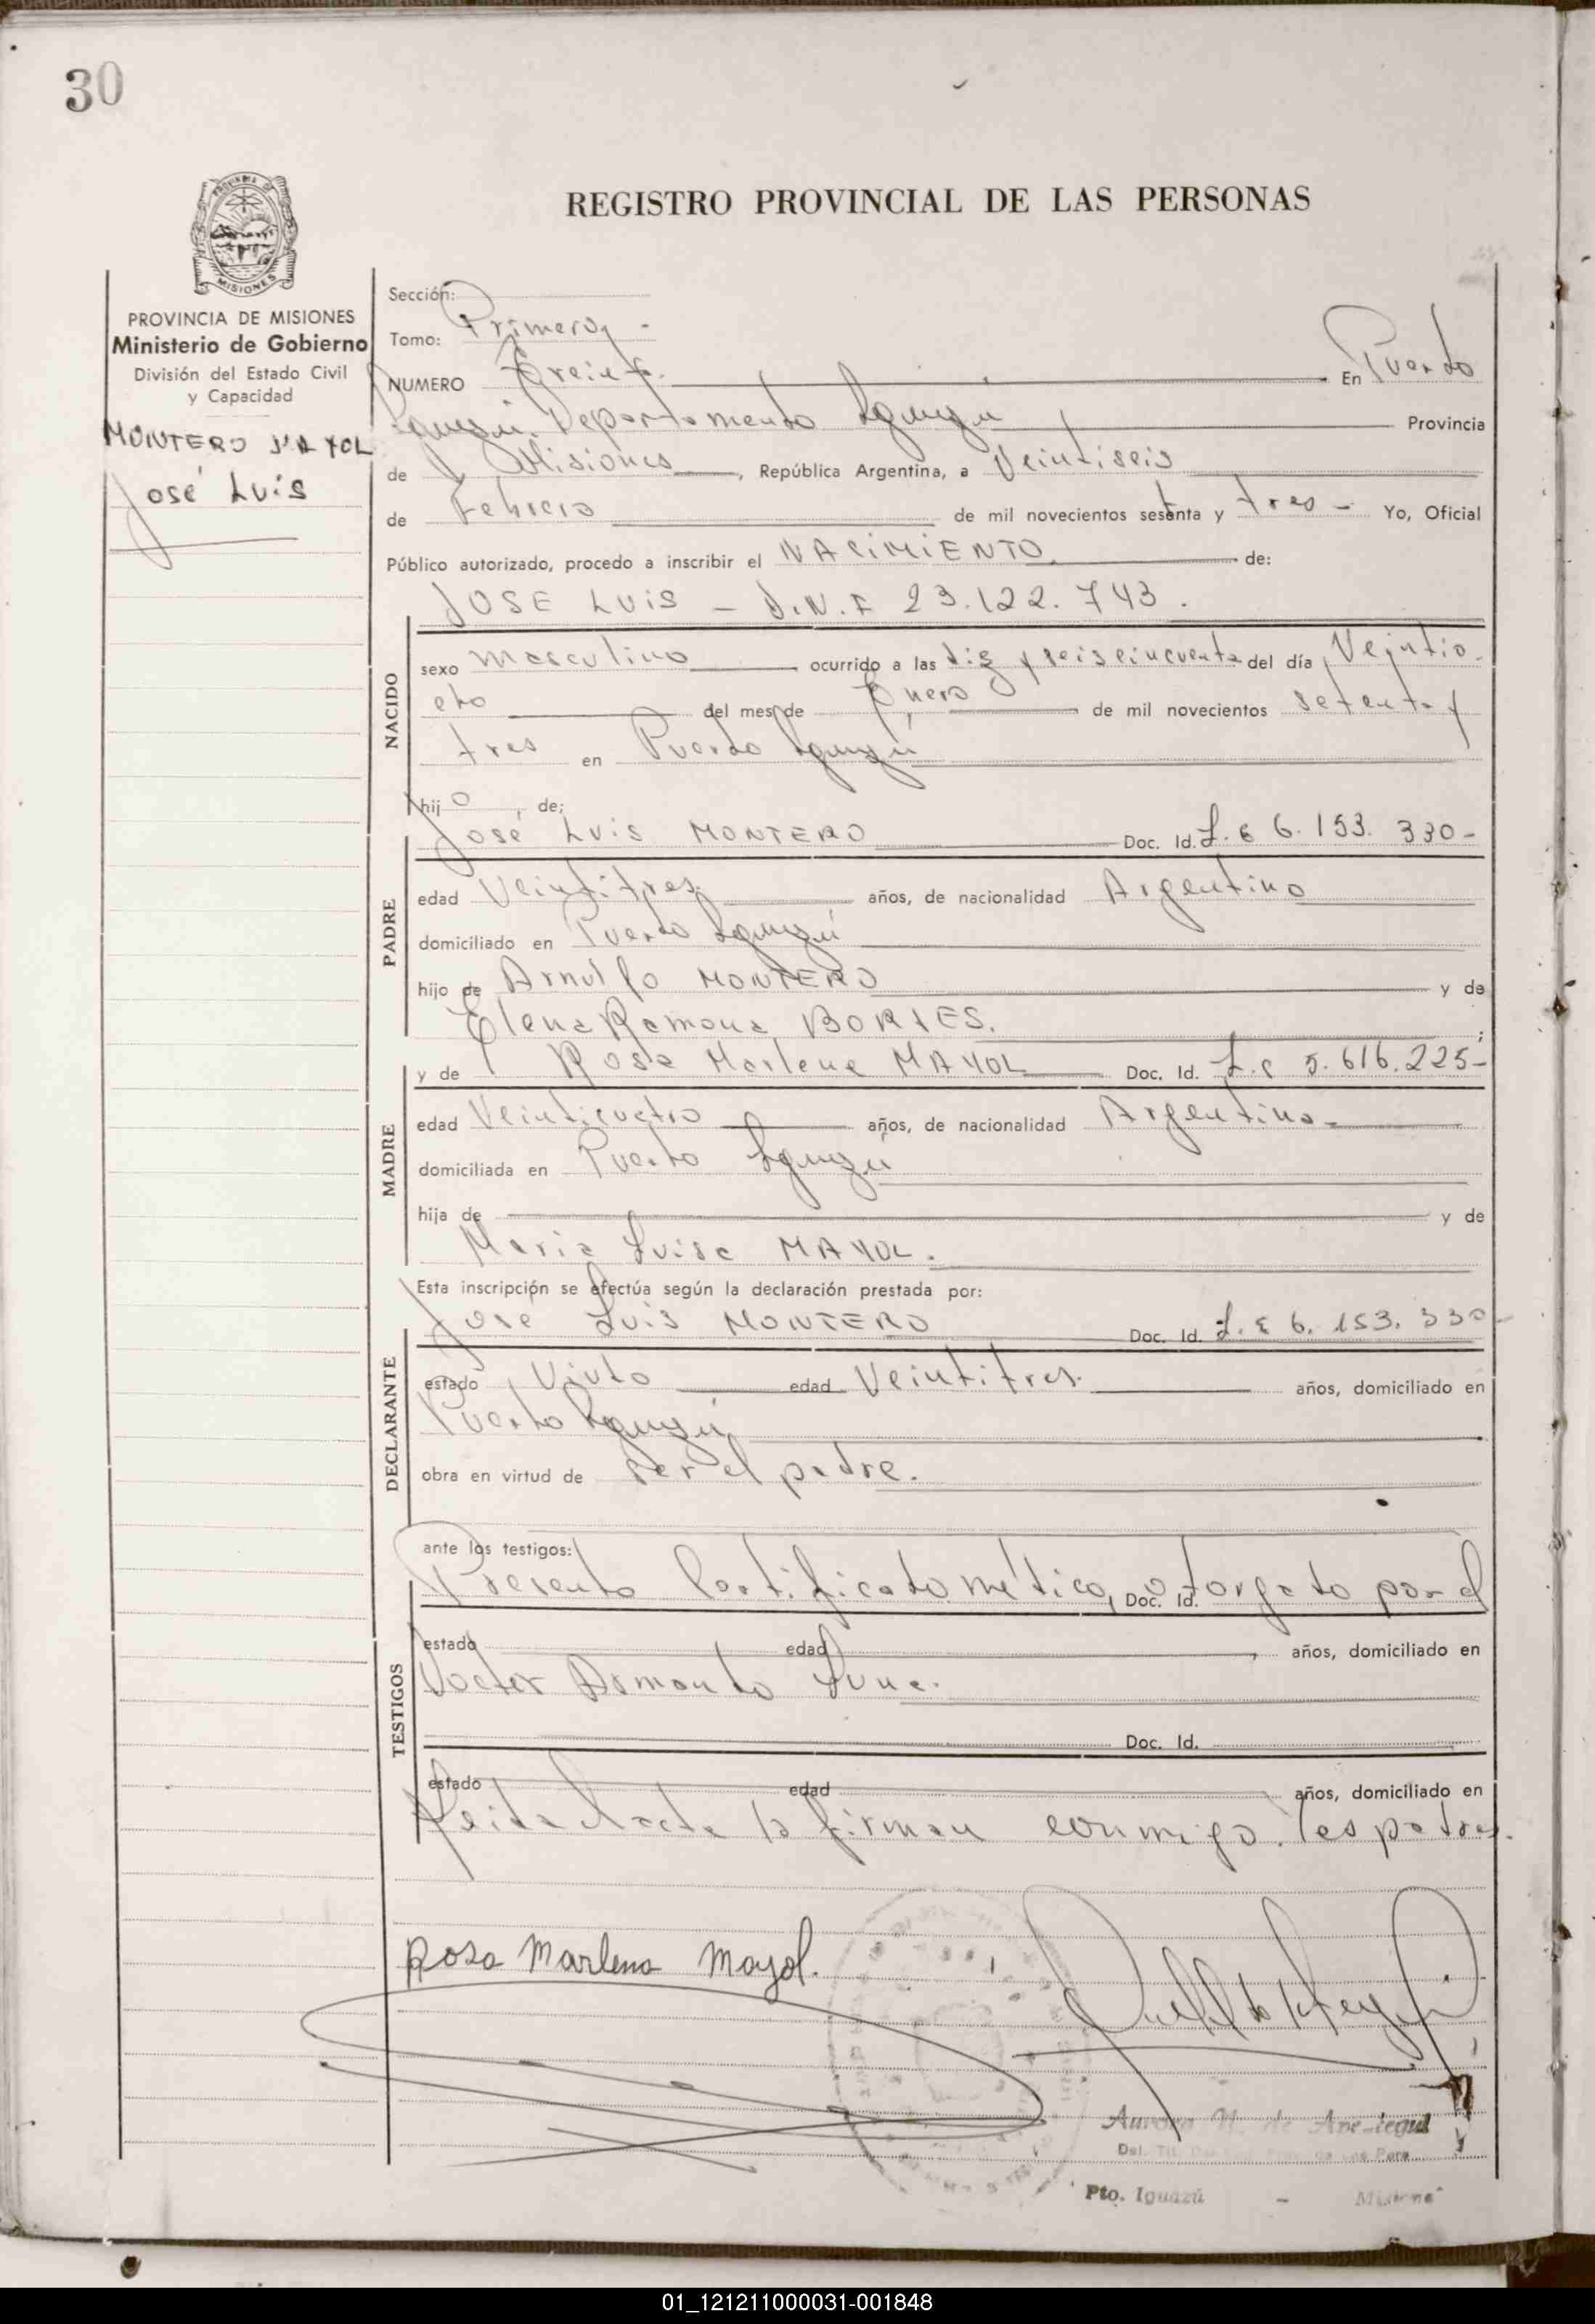 30
REGISTRO PROVINCIAL DE LAS PERSONAS
MISIONES
PROVINCIA DE MISIONES
Ministerio de Gobierno
División del Estado Civil
y Capacidad
MONTERO MAYOL
José Luis
Sección:
Tomo: Primero -
NUMERO Treinta. En Puerto
Iguazú. Departamento Iguazú Provincia
de Misiones, República Argentina, a Veintiseis
de Febrero de mil novecientos setenta y tres - Yo, Oficial
Público autorizado, procedo a inscribir el NACIMIENTO de:
JOSE LUIS - D.N.I 23.122.743.
NACIDO
sexo masculino ocurrido a las diez y seis cincuenta del día Veintio
cho del mes de Enero de mil novecientos setenta y
tres en Puerto Iguazú
hijo, de:
José Luis MONTERO Doc. Id. L.E 6.153.330-
PADRE
edad Veintitres. años, de nacionalidad Argentino
domiciliado en Puerto Iguazú
hijo de Arnulfo MONTERO y de
Elena Ramona
y de Rosa Marlene MAYOL Doc. Id. L.C 5.616.225-
MADRE
edad Veinticuatro años, de nacionalidad Argentina-
domiciliada en Puerto Iguazú
hija de y de
Maria Luisa MAYOL.
Esta inscripción se efectúa según la declaración prestada por:
José Luis MONTERO Doc. Id. L.E 6.153.330-
DECLARANTE
estado edad Veintitres. años, domiciliado en
Puerto Iguazú
obra en virtud de ser el padre.
ante los testigos:
Presento Certificado médico, otorgado por el
Doc. Id.
TESTIGOS
estado edad años, domiciliado en
Doctor Armando Luna.
Doc. Id.
estado edad años, domiciliado en
Leida el acta la firman conmigo. los padres.
Rosa Marlene Mayol.
Aurora de
Pto. Iguazú - Misiones
01_121211000031-001848